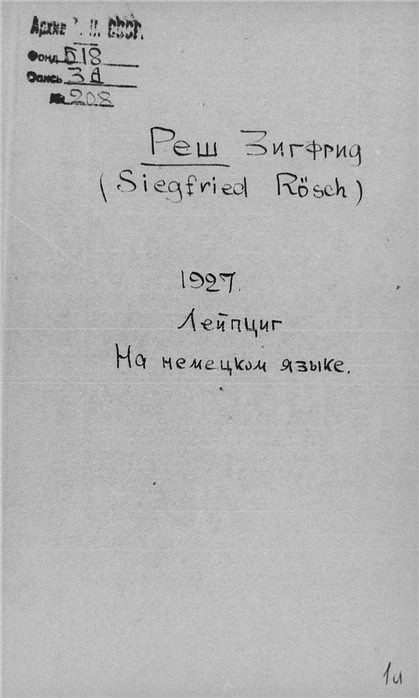 Архив А. Н. СССР.
Фонд 518
Опись 3А
№ 208
Реш Зигфрид
(Siegfried Rösch)
1927.
Лейпциг
На немецком языке.
1и